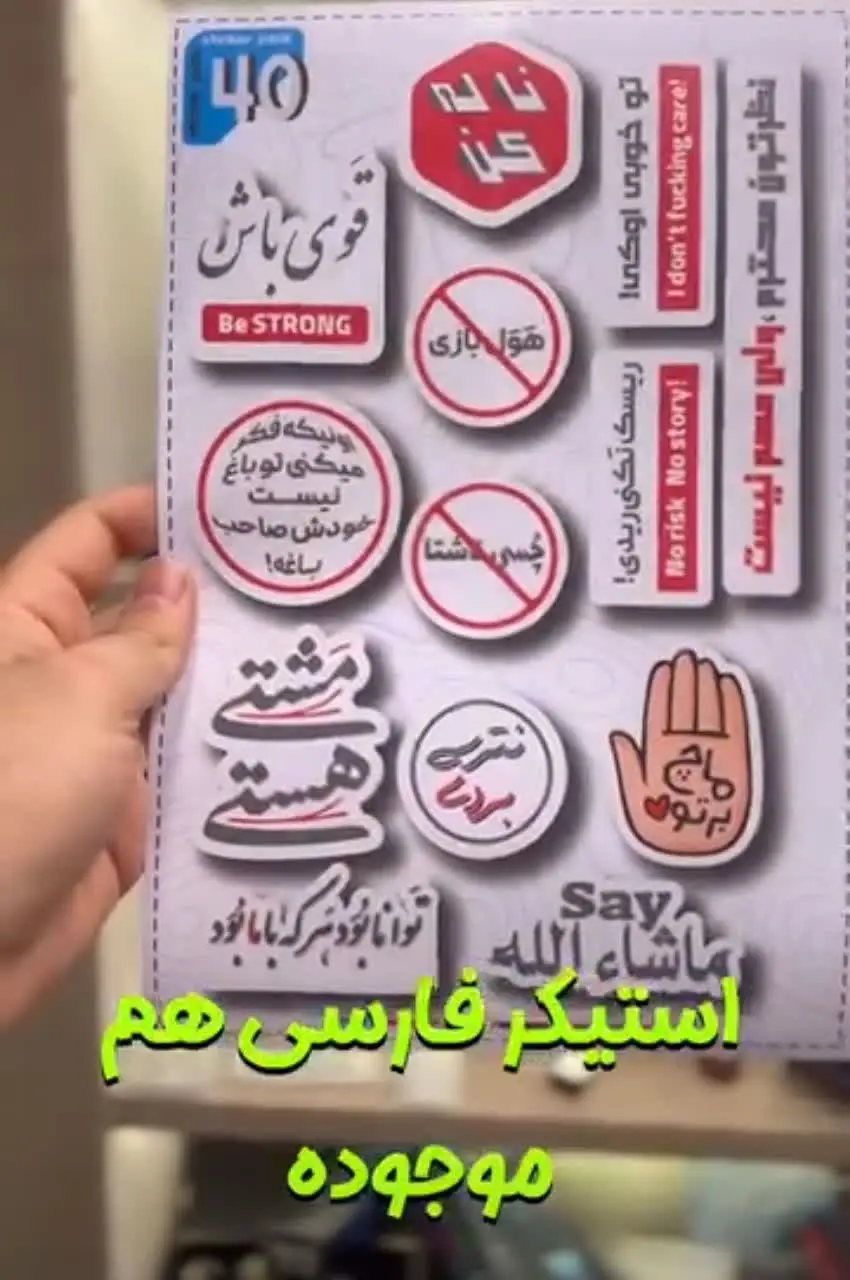 40
نا له
کن
قوی باش
Be STRONG
هَوَل بازی
تو خوبی اوکی!
I don't fucking care!
نظرتون محترم، ولی مهم نیست
ریسک نکنی ریدی!
No risk No story!
اونیکه فکر
میکنی تو باغ
نیست
خودش صاحب
باغه!
چُسی ناشتا
مَشتی
هستی
نترس
ماچ
بر تو
توانا بُوَد هر که با ما بُوَد
Say
ماشاء الله
استیکر فارسی هم
موجوده